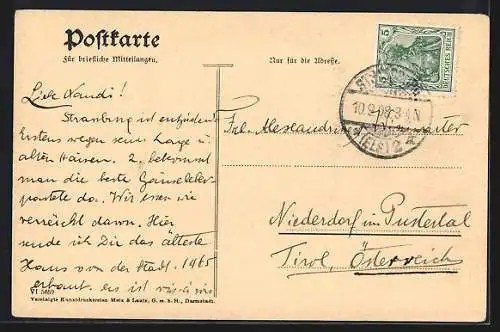 Postkarte
Für briefliche Mitteilungen.
Nur für die Adresse.
5
DEUTSCHES REICH
10.9.08.3-4N
(ELS) 2
Liebe Nandi!
Strassburg ist entzückend
Erstens wegen sein Lage u
alten Häusern. 2. bekommt
man die beste Gänseleber-
pastete da. Wir essen sie
verrückt davon. Hier
sende ich Dir das älteste
Haus von der Stadt. 1465
erbaut. es ist vis-à-vis
Frl. Alexandrine
Niederdorf im Pustertal
Tirol, Österreich
VI 5659
Vereinigte Kunstdruckereien Metz & Lautz, G. m. b. H., Darmstadt.